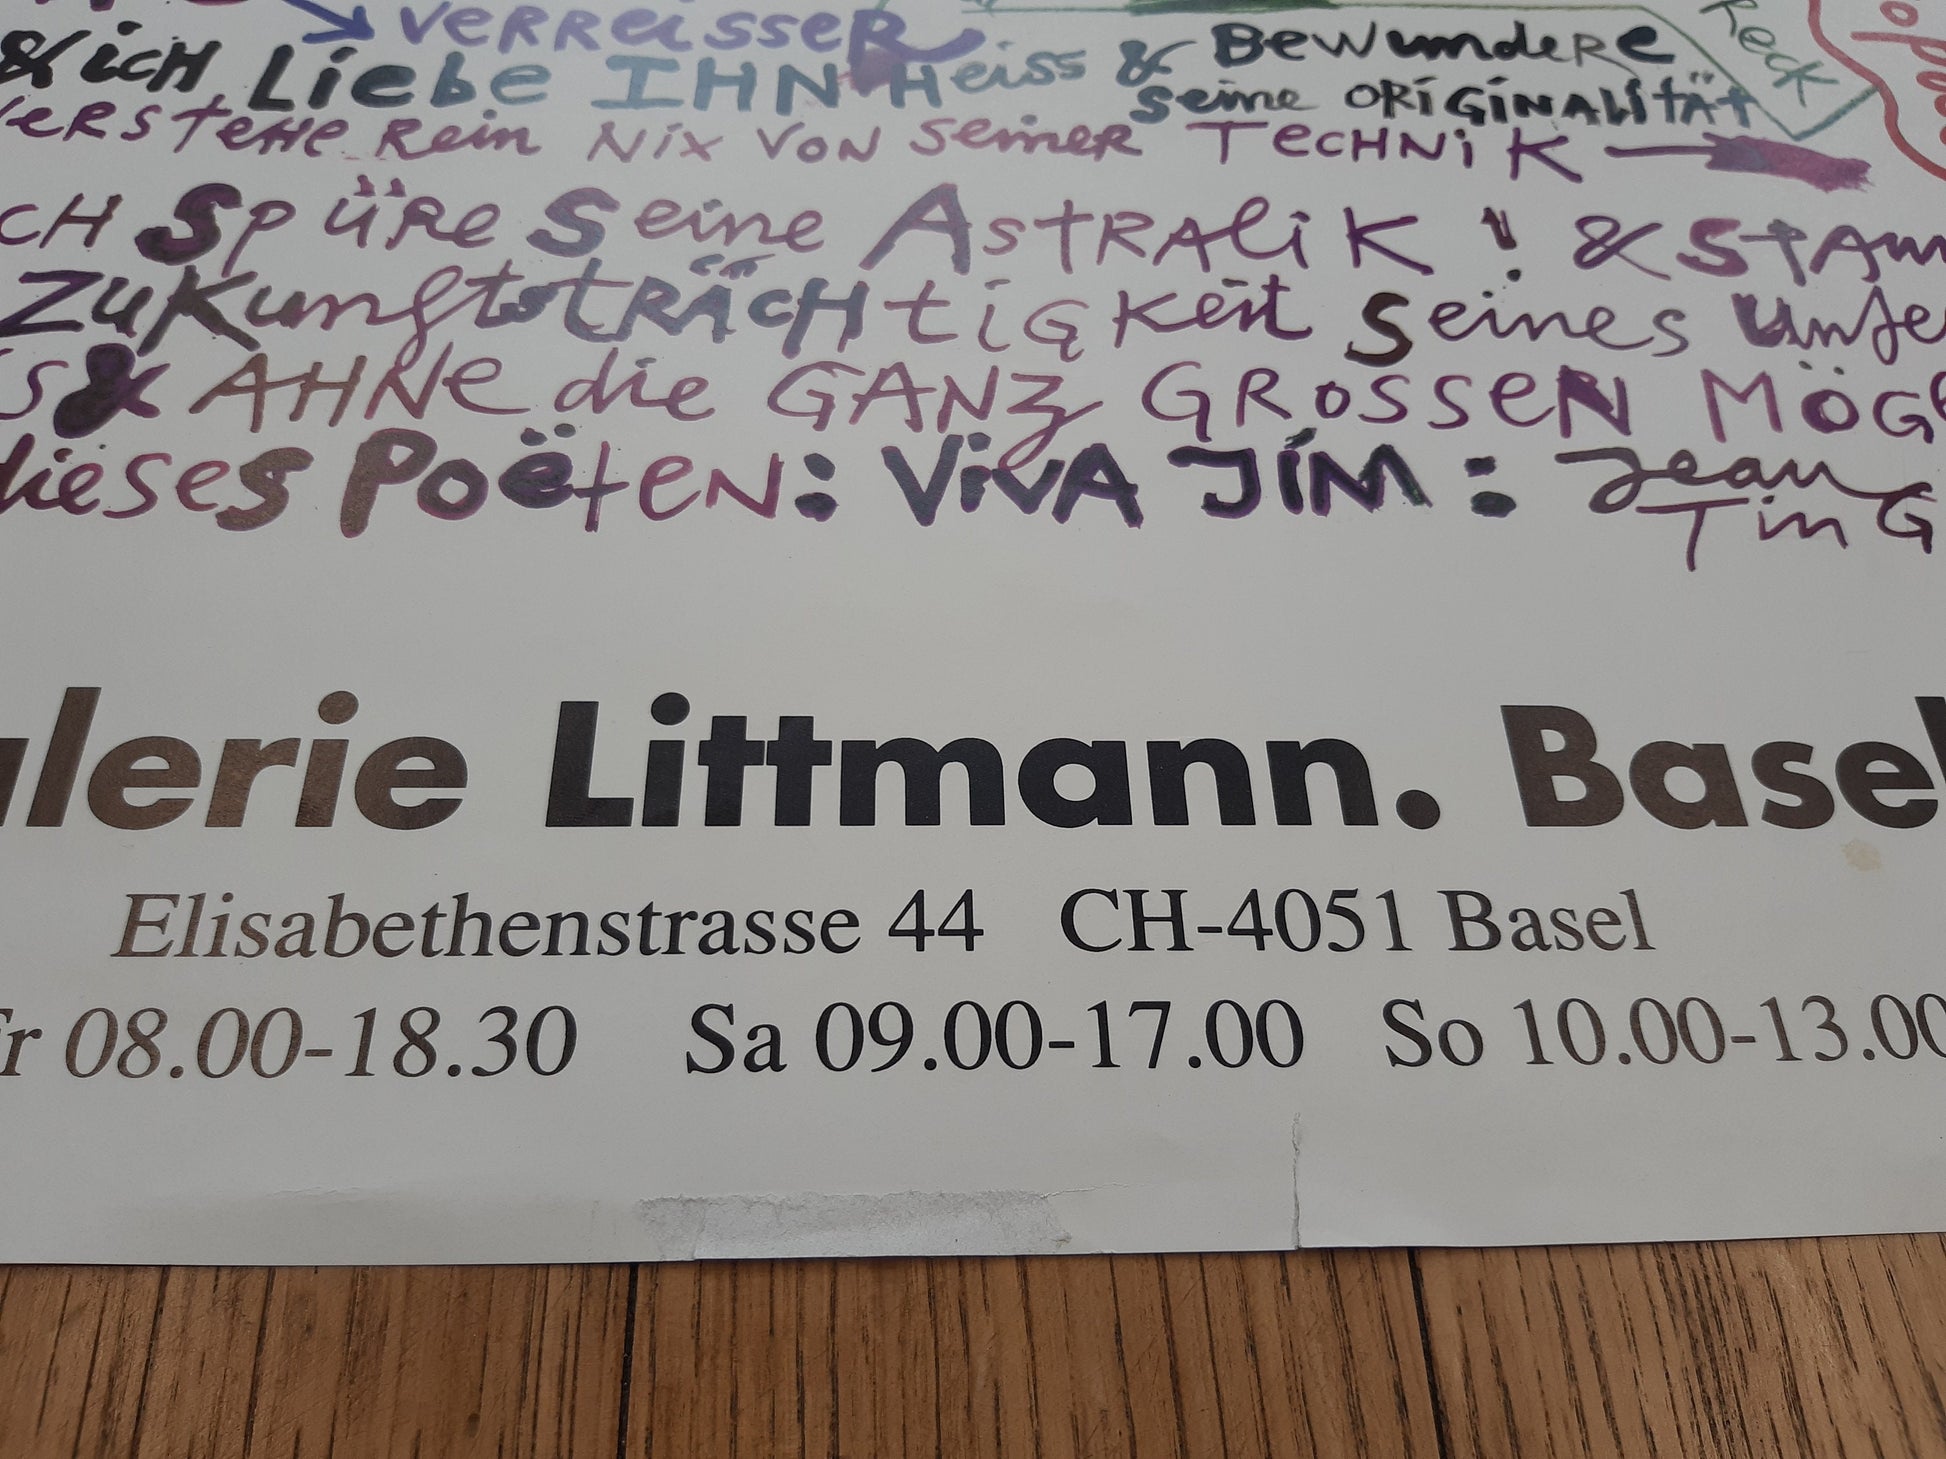 VERREISSER
& ICH Liebe IHN Heiss & BEWUNDERE
seine ORIGINALITÄT
VERSTEHE Rein NIX VON seiner TECHNIK
Spüre Seine ASTRALIK ! &
ZUKUNFTSTRÄCHtiGKeit seines
& AHNe die GANZ GROSSEN
dieses POËTEN: VIVA JIM : Jean
Reck
alerie Littmann. Basel
Elisabethenstrasse 44 CH-4051 Basel
Fr 08.00-18.30 Sa 09.00-17.00 So 10.00-13.00